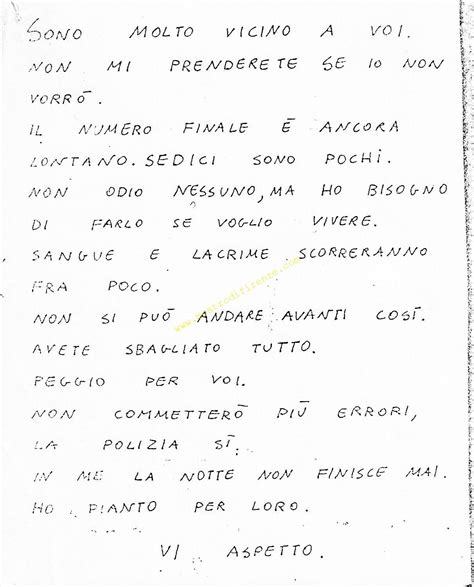 SONO MOLTO VICINO A VOI.
NON MI PRENDERETE SE IO NON
VORRÒ.
IL NUMERO FINALE È ANCORA
LONTANO. SEDICI SONO POCHI.
NON ODIO NESSUNO, MA HO BISOGNO
DI FARLO SE VOGLIO VIVERE.
SANGUE E LACRIME SCORRERANNO
FRA POCO.
NON SI PUÒ ANDARE AVANTI COSÌ.
AVETE SBAGLIATO TUTTO.
PEGGIO PER VOI.
NON COMMETTERÒ PIÙ ERRORI,
LA POLIZIA SÌ.
IN ME LA NOTTE NON FINISCE MAI.
HO PIANTO PER LORO.
VI ASPETTO.